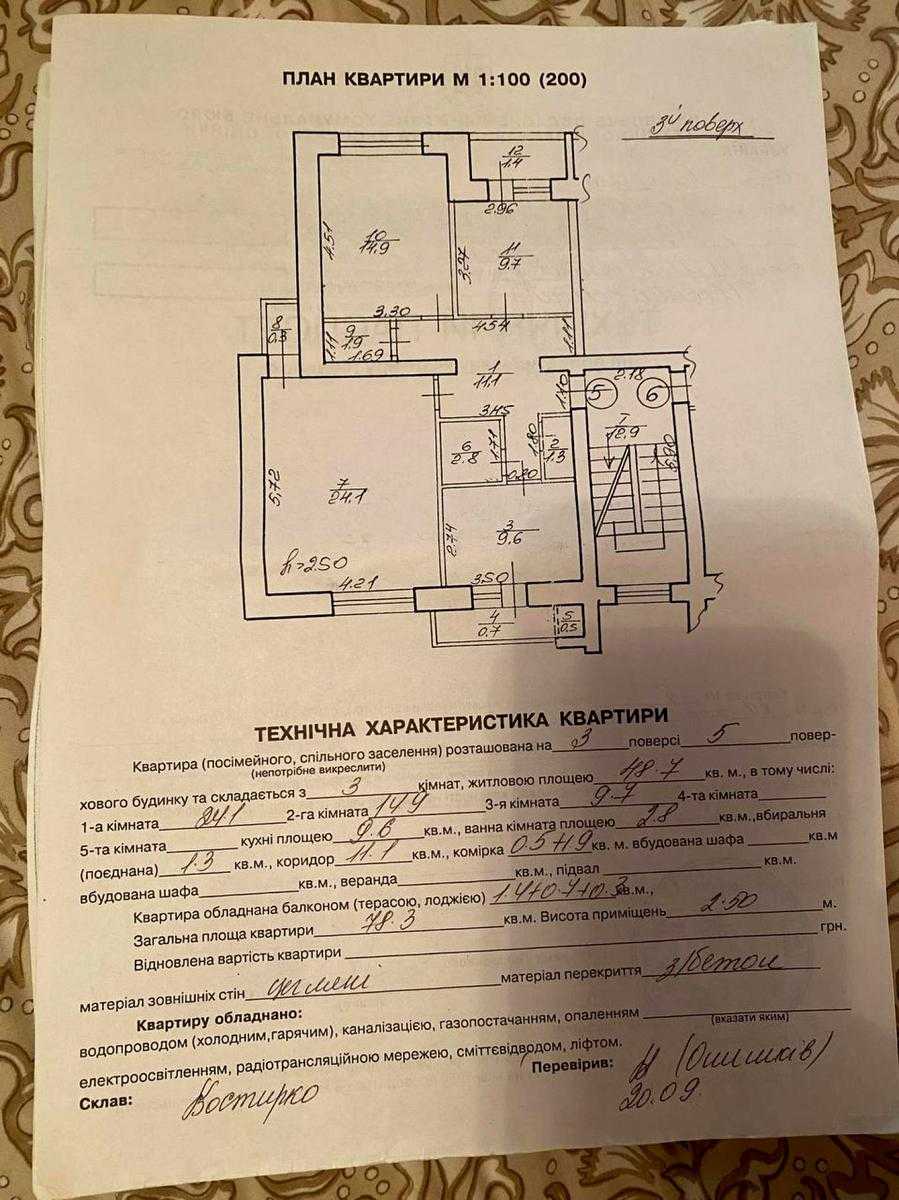 ПЛАН КВАРТИРИ М 1:100 (200)
3й поверх
12
1.4
2.96
10
14.9
4.51
3.27
11
9.7
3.30
4.54
1.11
8
0.3
9
1.9
1.11
1.69
1
11.1
3.45
1.10
2.18
5
6
1
12.9
5.90
6
2.8
1.71
1.80
2
1.3
0.80
5,72
7
24.1
2.74
3
9.6
h=2.50
4.21
3.50
4
0.7
5
0.5
ТЕХНІЧНА ХАРАКТЕРИСТИКА КВАРТИРИ
Квартира (посімейного, спільного заселення) розташована на 3 поверсі 5 повер-
(непотрібне викреслити)
хового будинку та складається з 3 кімнат, житловою площею 48.7 кв. м., в тому числі:
1-а кімната 24.1 2-га кімната 14.9 3-я кімната 9.7 4-та кімната
5-та кімната кухні площею 9.6 кв.м., ванна кімната площею 2.8 кв.м.,вбиральня
(поєднана) 1.3 кв.м., коридор 11.1 кв.м., комірка 0.5+1.9 кв. м. вбудована шафа кв.м
вбудована шафа кв.м., веранда кв.м., підвал кв.м.
Квартира обладнана балконом (терасою, лоджією) 1.4+0.7+0.3 кв.м.,
Загальна площа квартири 78.3 кв.м. Висота приміщень 2.50 м.
Відновлена вартість квартири грн.
матеріал зовнішніх стін цегляні матеріал перекриття з/бетон
Квартиру обладнано:
водопроводом (холодним,гарячим), каналізацією, газопостачанням, опаленням
(вказати яким)
електроосвітленням, радіотрансляційною мережею, сміттєвідводом, ліфтом.
Склав: Костирко Перевірив:
20.09.